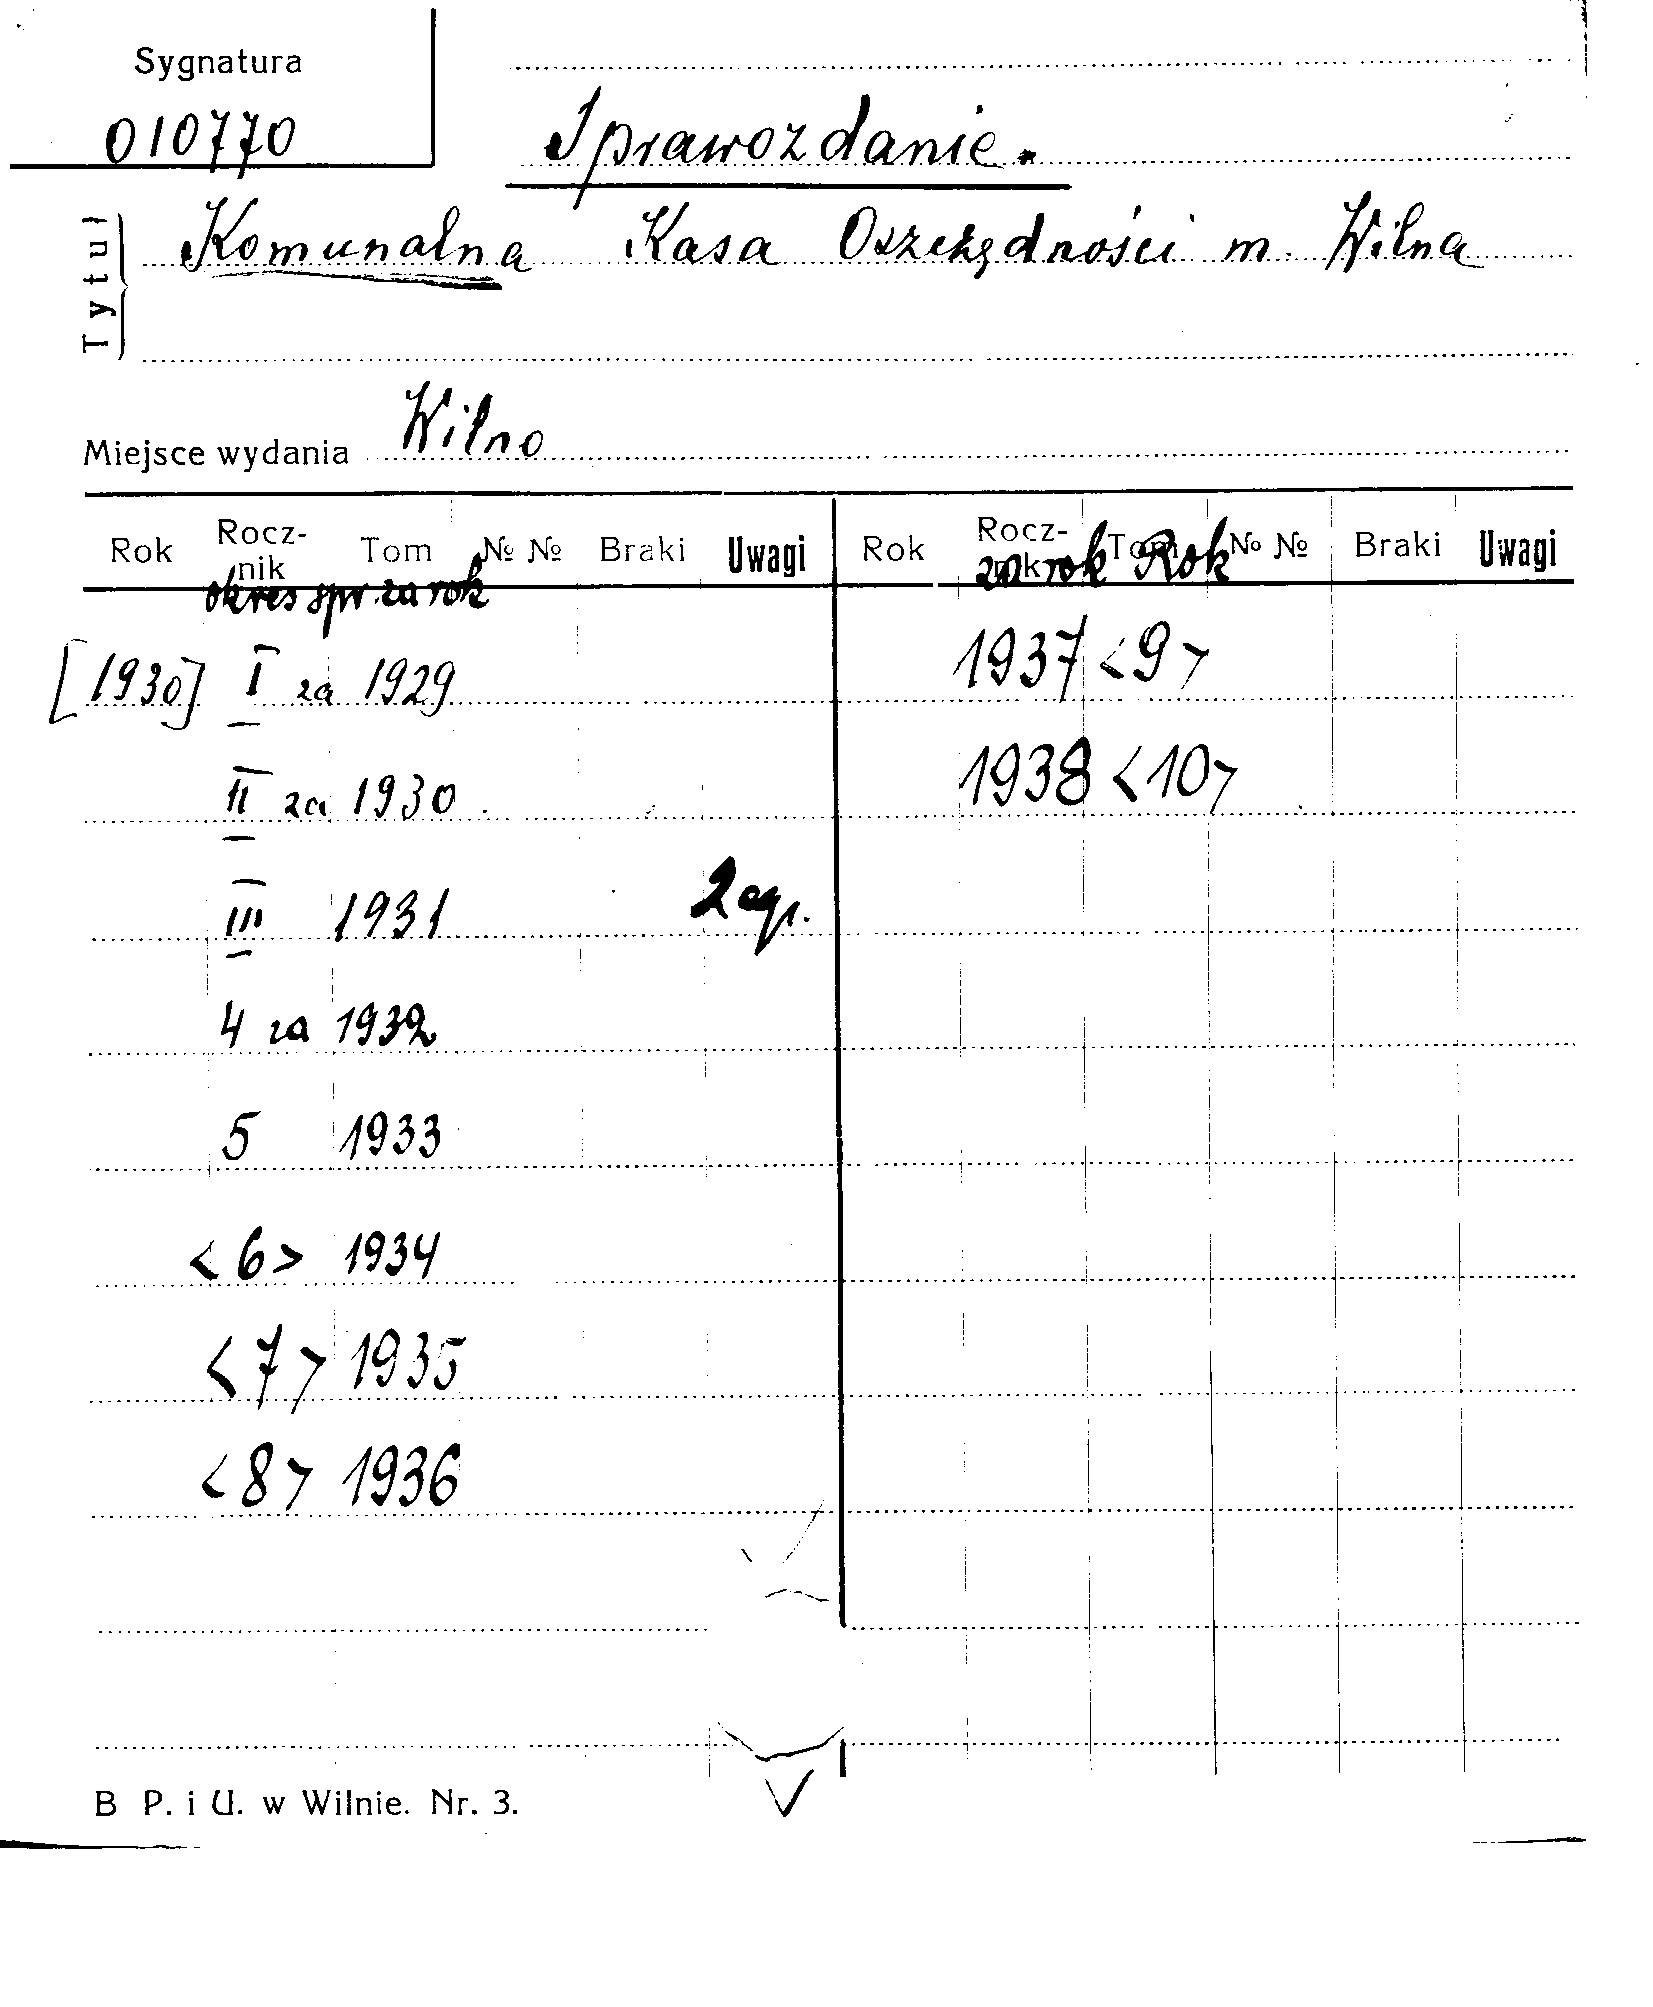 Sygnatura
010770
Sprawozdanie.
Tytuł
Komunalna Kasa Oszczędności m. Wilna
Miejsce wydania Wilno
Rok Rocz-nik Tom № № Braki Uwagi Rok Rocz-nik Tom № № Braki Uwagi
okres spr. za rok za rok Rok
[1930] I za 1929 1937 <9>
II za 1930 1938 <10>
III 1931 2 egz.
4 za 1932
5 1933
<6> 1934
<7> 1935
<8> 1936
B P. i U. w Wilnie. Nr. 3.